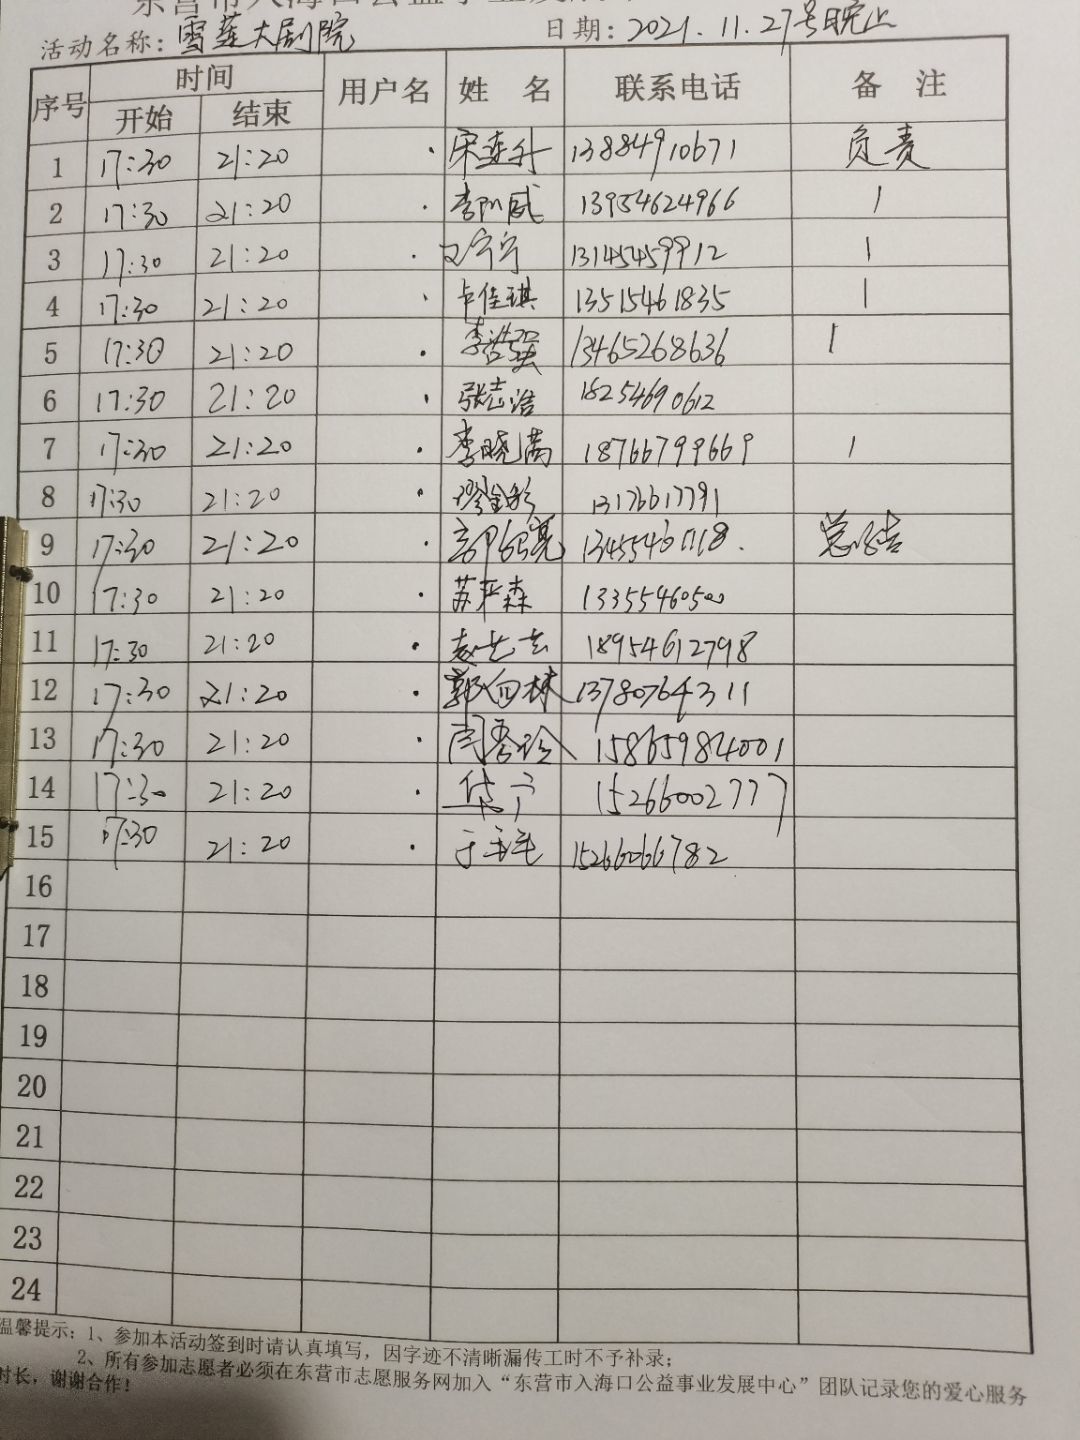 活动名称: 雪莲大剧院 日期: 2021.11.27号晚上
序号 时间 用户名 姓 名 联系电话 备 注
开始 结束
1 17:30 21:20 · 宋连升 13884910671 负责
2 17:30 21:20 · 威 13954624966 1
3 17:30 21:20 · 宁宁 13145459912 1
4 17:30 21:20 · 卢佳琪 13515461835 1
5 17:30 21:20 · 李浩强 13465268636 1
6 17:30 21:20 · 张志浩 18254690612
7 17:30 21:20 · 李晓萌 18766799669 1
8 17:30 21:20 · 13176617791
9 17:30 21:20 · 亮 总结
10 17:30 21:20 · 苏严森 13355460500
11 17:30 21:20 · 18954612798
12 17:30 21:20 · 郭向林 13780764311
13 17:30 21:20 · 15865984001
14 17:30 21:20 · 15266002777
15 17:30 21:20 · 15266066782
16
17
18
19
20
21
22
23
24
温馨提示: 1、参加本活动签到时请认真填写,因字迹不清晰漏传工时不予补录;
2、所有参加志愿者必须在东营市志愿服务网加入“东营市入海口公益事业发展中心”团队记录您的爱心服务
时长,谢谢合作!